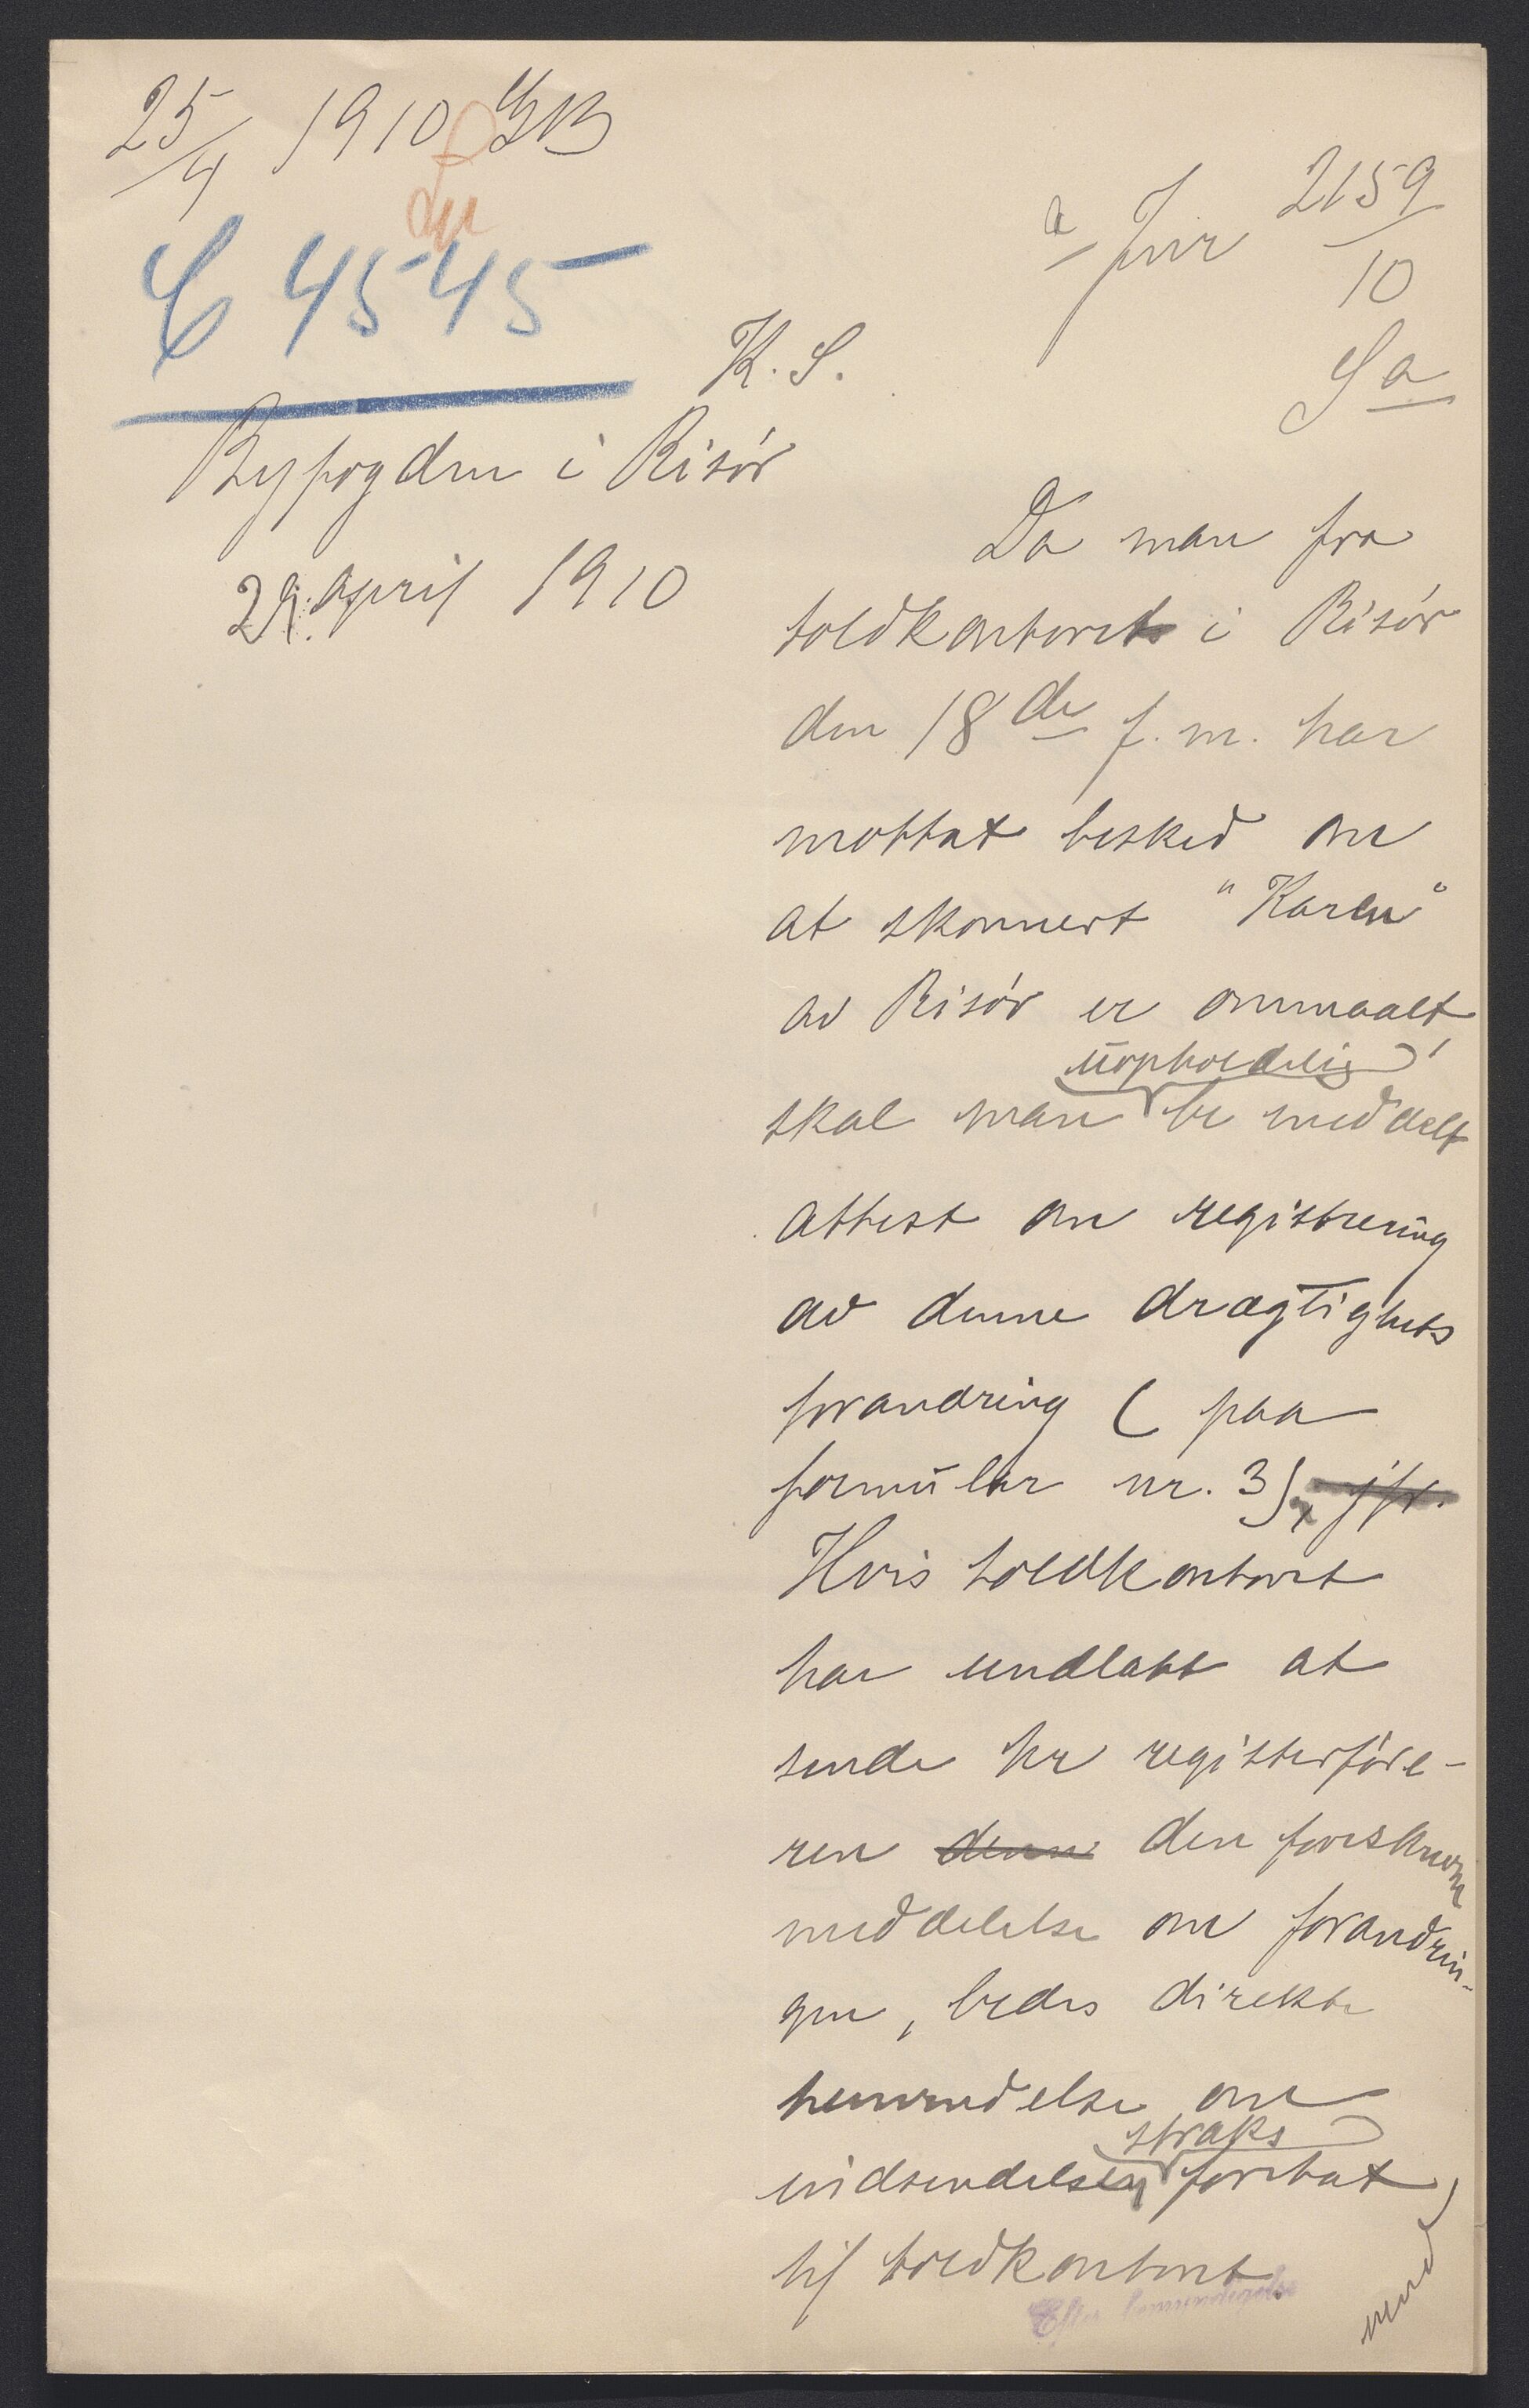 25/4 1910
C 4545
a/ Jnr 2159/10
Sa
K. S.
Byfogden i Risör
29. april 1910
Da man fra
toldkontoret i Risör
den 18de f. m. har
mottat besked om
at skonnert "Karen"
av Risör er ommaalt,
uopholdelig
skal man be meddelt
attest om registrering
av denne drægtighets
forandring (paa
formular nr. 3), jfr.
Hvis toldkontoret
har undlatt at
sende hr registerföre-
ren denne den foreskrevne
meddelelse om forandrin-
gen, bedes direkte
henvendelse om
straks
indsendelsen foretat
til toldkontoret
Efter bemyndigelse
vend